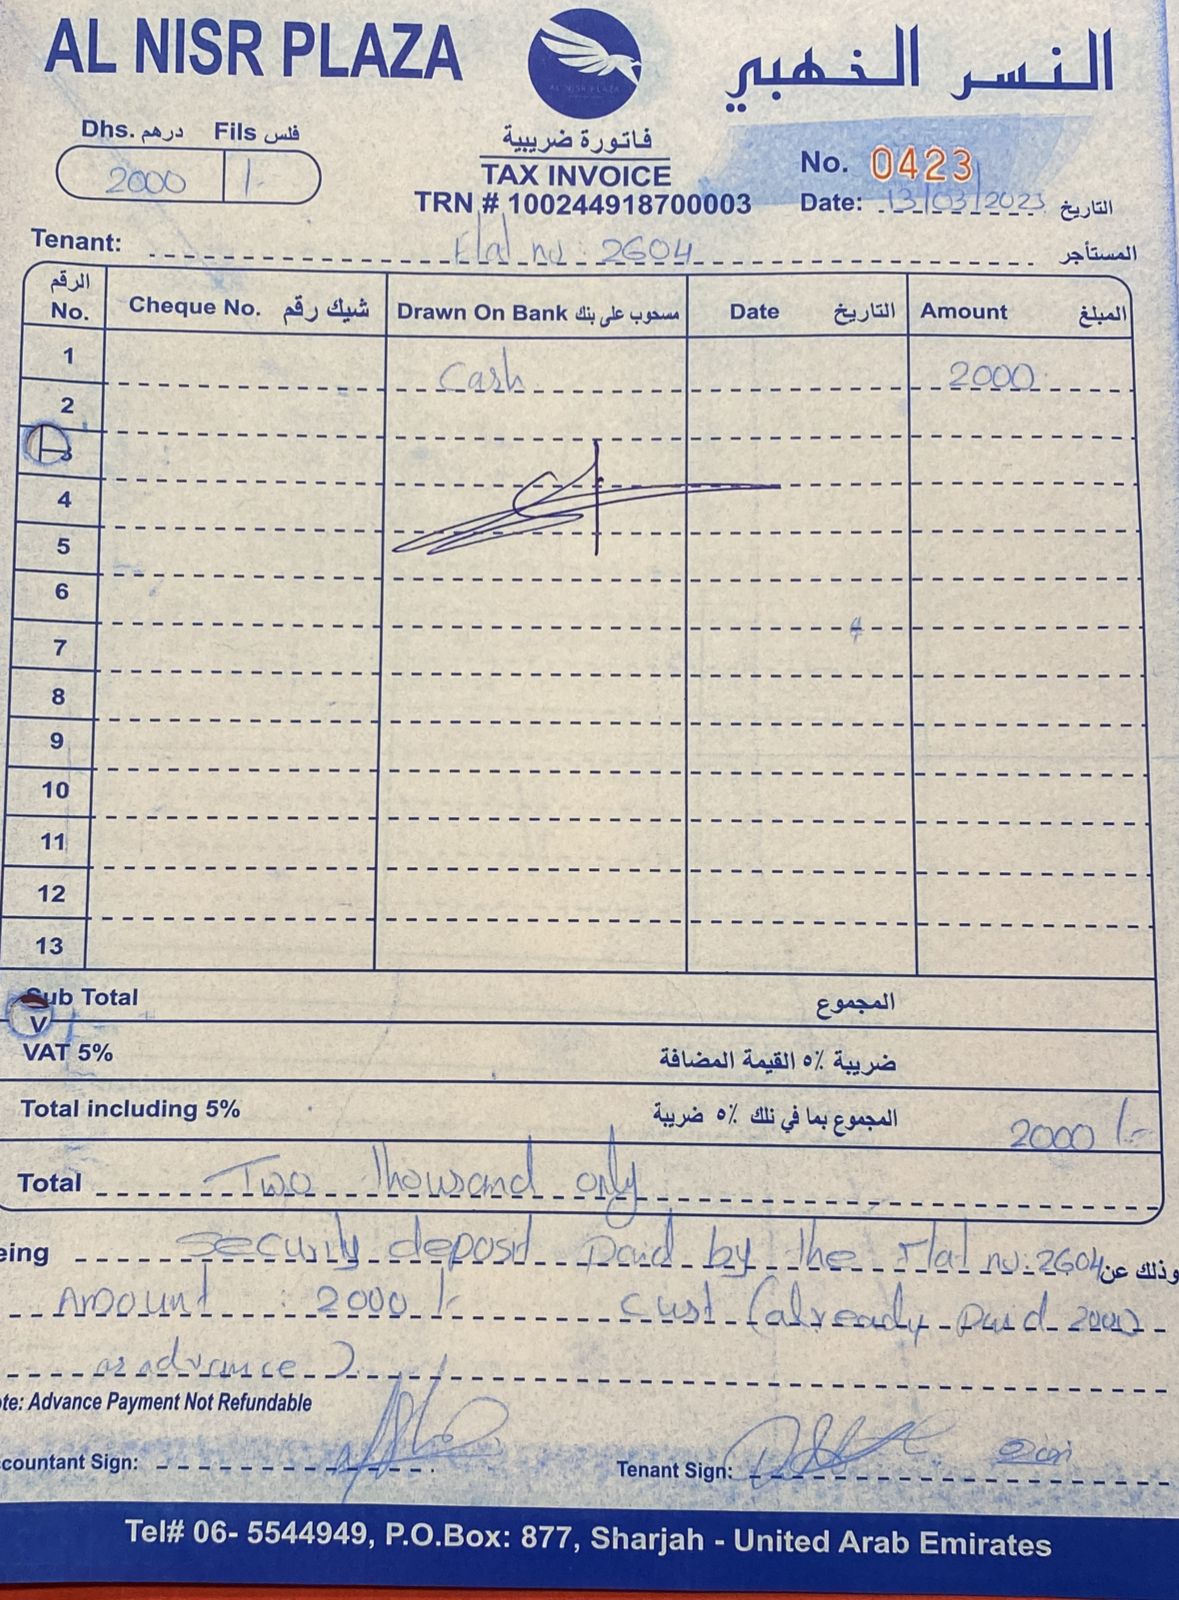 AL NISR PLAZA
النسر الذهبي
AL NISR PLAZA
Dhs. درهم Fils فلس
2000 /-
فاتورة ضريبية
TAX INVOICE
TRN # 100244918700003
No. 0423
Date: 13/03/2023 التاريخ
Tenant: Flat no : 2604 المستأجر
الرقم No. Cheque No. شيك رقم Drawn On Bank مسحوب على بنك Date التاريخ Amount المبلغ
1 Cash 2000
2
3
4
5
6
7
8
9
10
11
12
13
Sub Total المجموع
V
VAT 5% ضريبة ٥٪ القيمة المضافة
Total including 5% المجموع بما في ذلك ٥٪ ضريبة 2000 /-
Total Two thousand only
eing Security deposit paid by the Flat no: 2604 وذلك عن
Amount : 2000 /- (already paid 2000
as advance)
te: Advance Payment Not Refundable
ccountant Sign: Tenant Sign:
Tel# 06- 5544949, P.O.Box: 877, Sharjah - United Arab Emirates